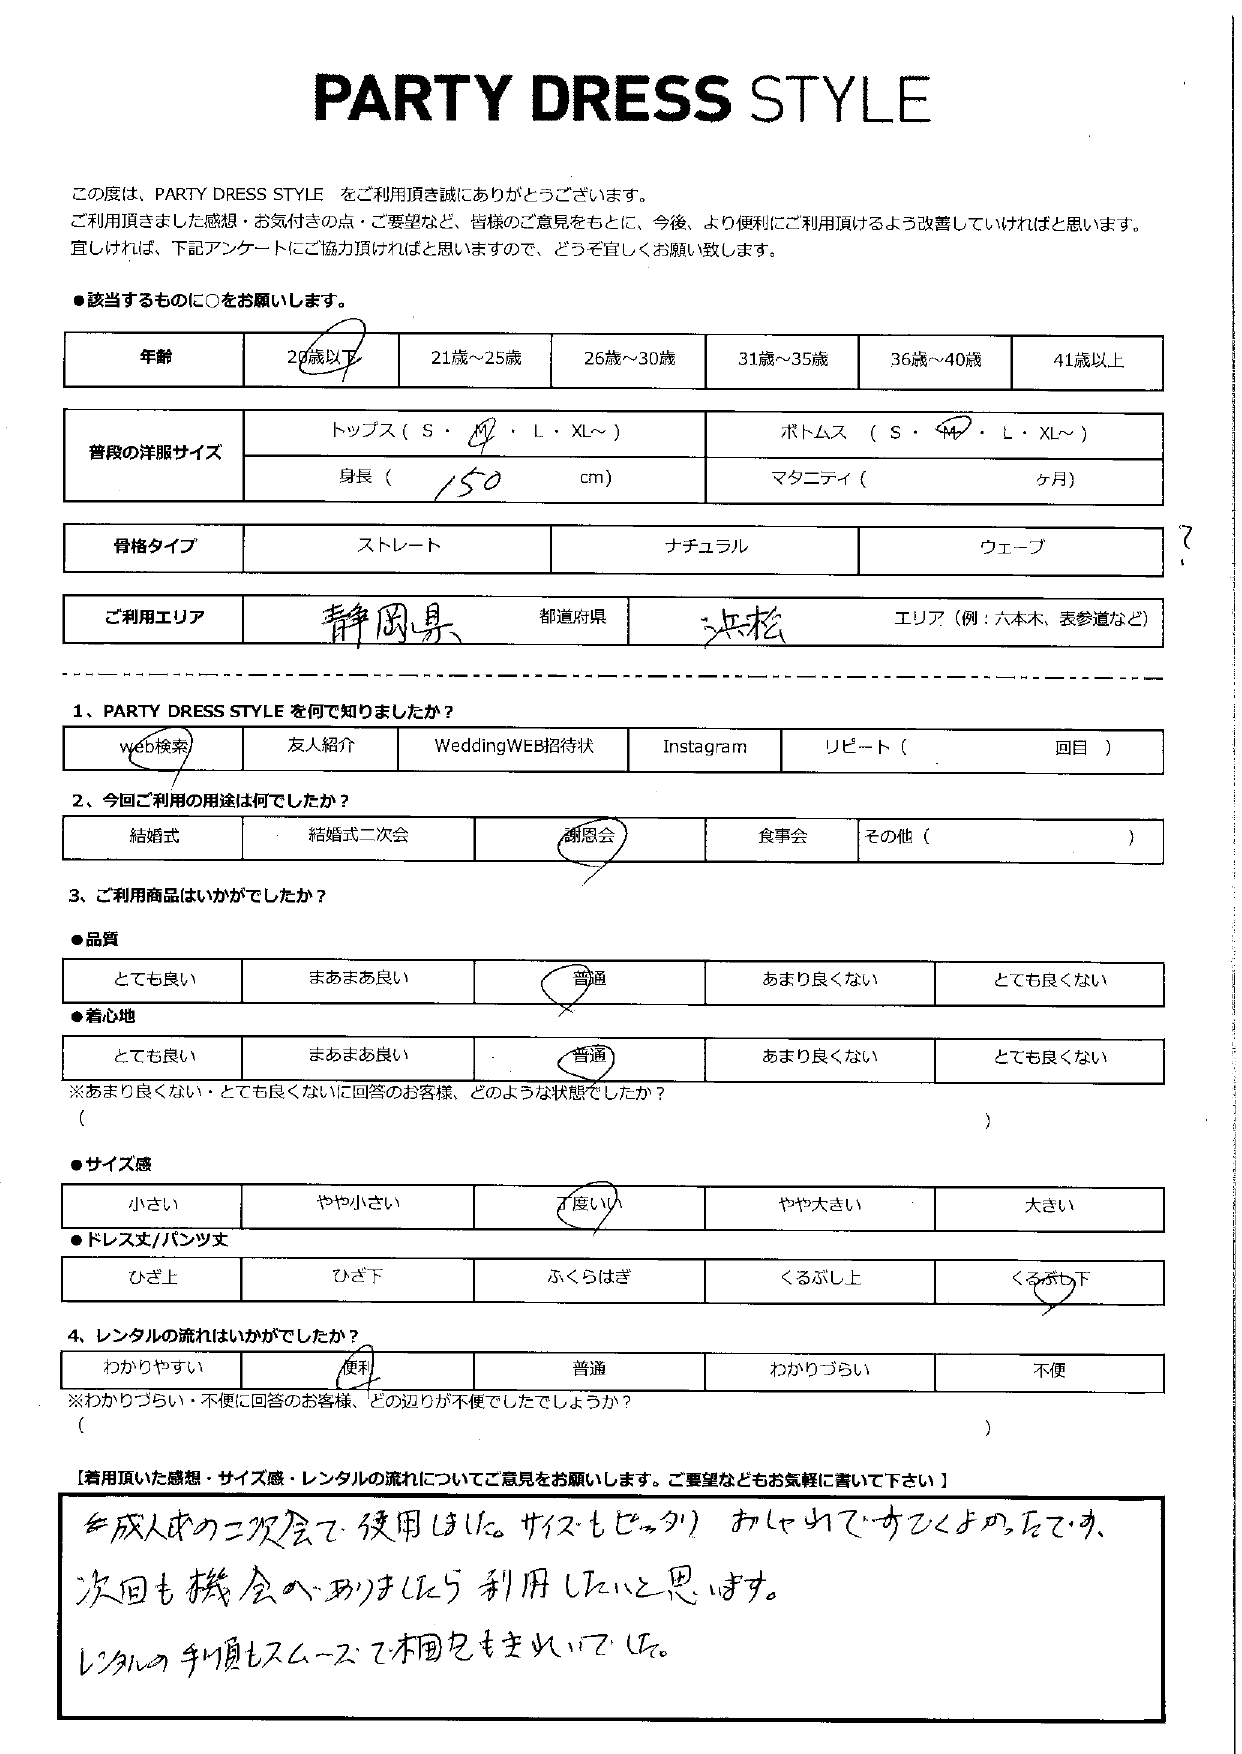 PARTY DRESS STYLE
この度は、PARTY DRESS STYLE をご利用頂き誠にありがとうございます。
ご利用頂きました感想・お気付きの点・ご要望など、皆様のご意見をもとに、今後、より便利にご利用頂けるよう改善していければと思います。
宜しければ、下記アンケートにご協力頂ければと思いますので、どうぞ宜しくお願い致します。
●該当するものに○をお願いします。
年齢 20歳以下 21歳～25歳 26歳～30歳 31歳～35歳 36歳～40歳 41歳以上
普段の洋服サイズ トップス ( S ・ M ・ L ・ XL～ ) ボトムス ( S ・ M ・ L ・ XL～ )
身長 ( 150 cm) マタニティ ( ヶ月)
骨格タイプ ストレート ナチュラル ウェーブ ?
ご利用エリア 静岡県 都道府県 浜松 エリア（例：六本木、表参道など）
1、PARTY DRESS STYLE を何で知りましたか？
web検索 友人紹介 WeddingWEB招待状 Instagram リピート ( 回目 )
2、今回ご利用の用途は何でしたか？
結婚式 結婚式二次会 謝恩会 食事会 その他 ( )
3、ご利用商品はいかがでしたか？
●品質
とても良い まあまあ良い 普通 あまり良くない とても良くない
●着心地
とても良い まあまあ良い 普通 あまり良くない とても良くない
※あまり良くない・とても良くないに回答のお客様、どのような状態でしたか？
( )
●サイズ感
小さい やや小さい 丁度いい やや大きい 大きい
●ドレス丈/パンツ丈
ひざ上 ひざ下 ふくらはぎ くるぶし上 くるぶし下
4、レンタルの流れはいかがでしたか？
わかりやすい 便利 普通 わかりづらい 不便
※わかりづらい・不便に回答のお客様、どの辺りが不便でしたでしょうか？
( )
【着用頂いた感想・サイズ感・レンタルの流れについてご意見をお願いします。ご要望などもお気軽に書いて下さい 】
成人式の二次会で使用しました。サイズもピッタリ おしゃれですごくよかったです、
次回も機会がありましたら利用したいと思います。
レンタルの手順もスムーズで梱包もきれいでした。